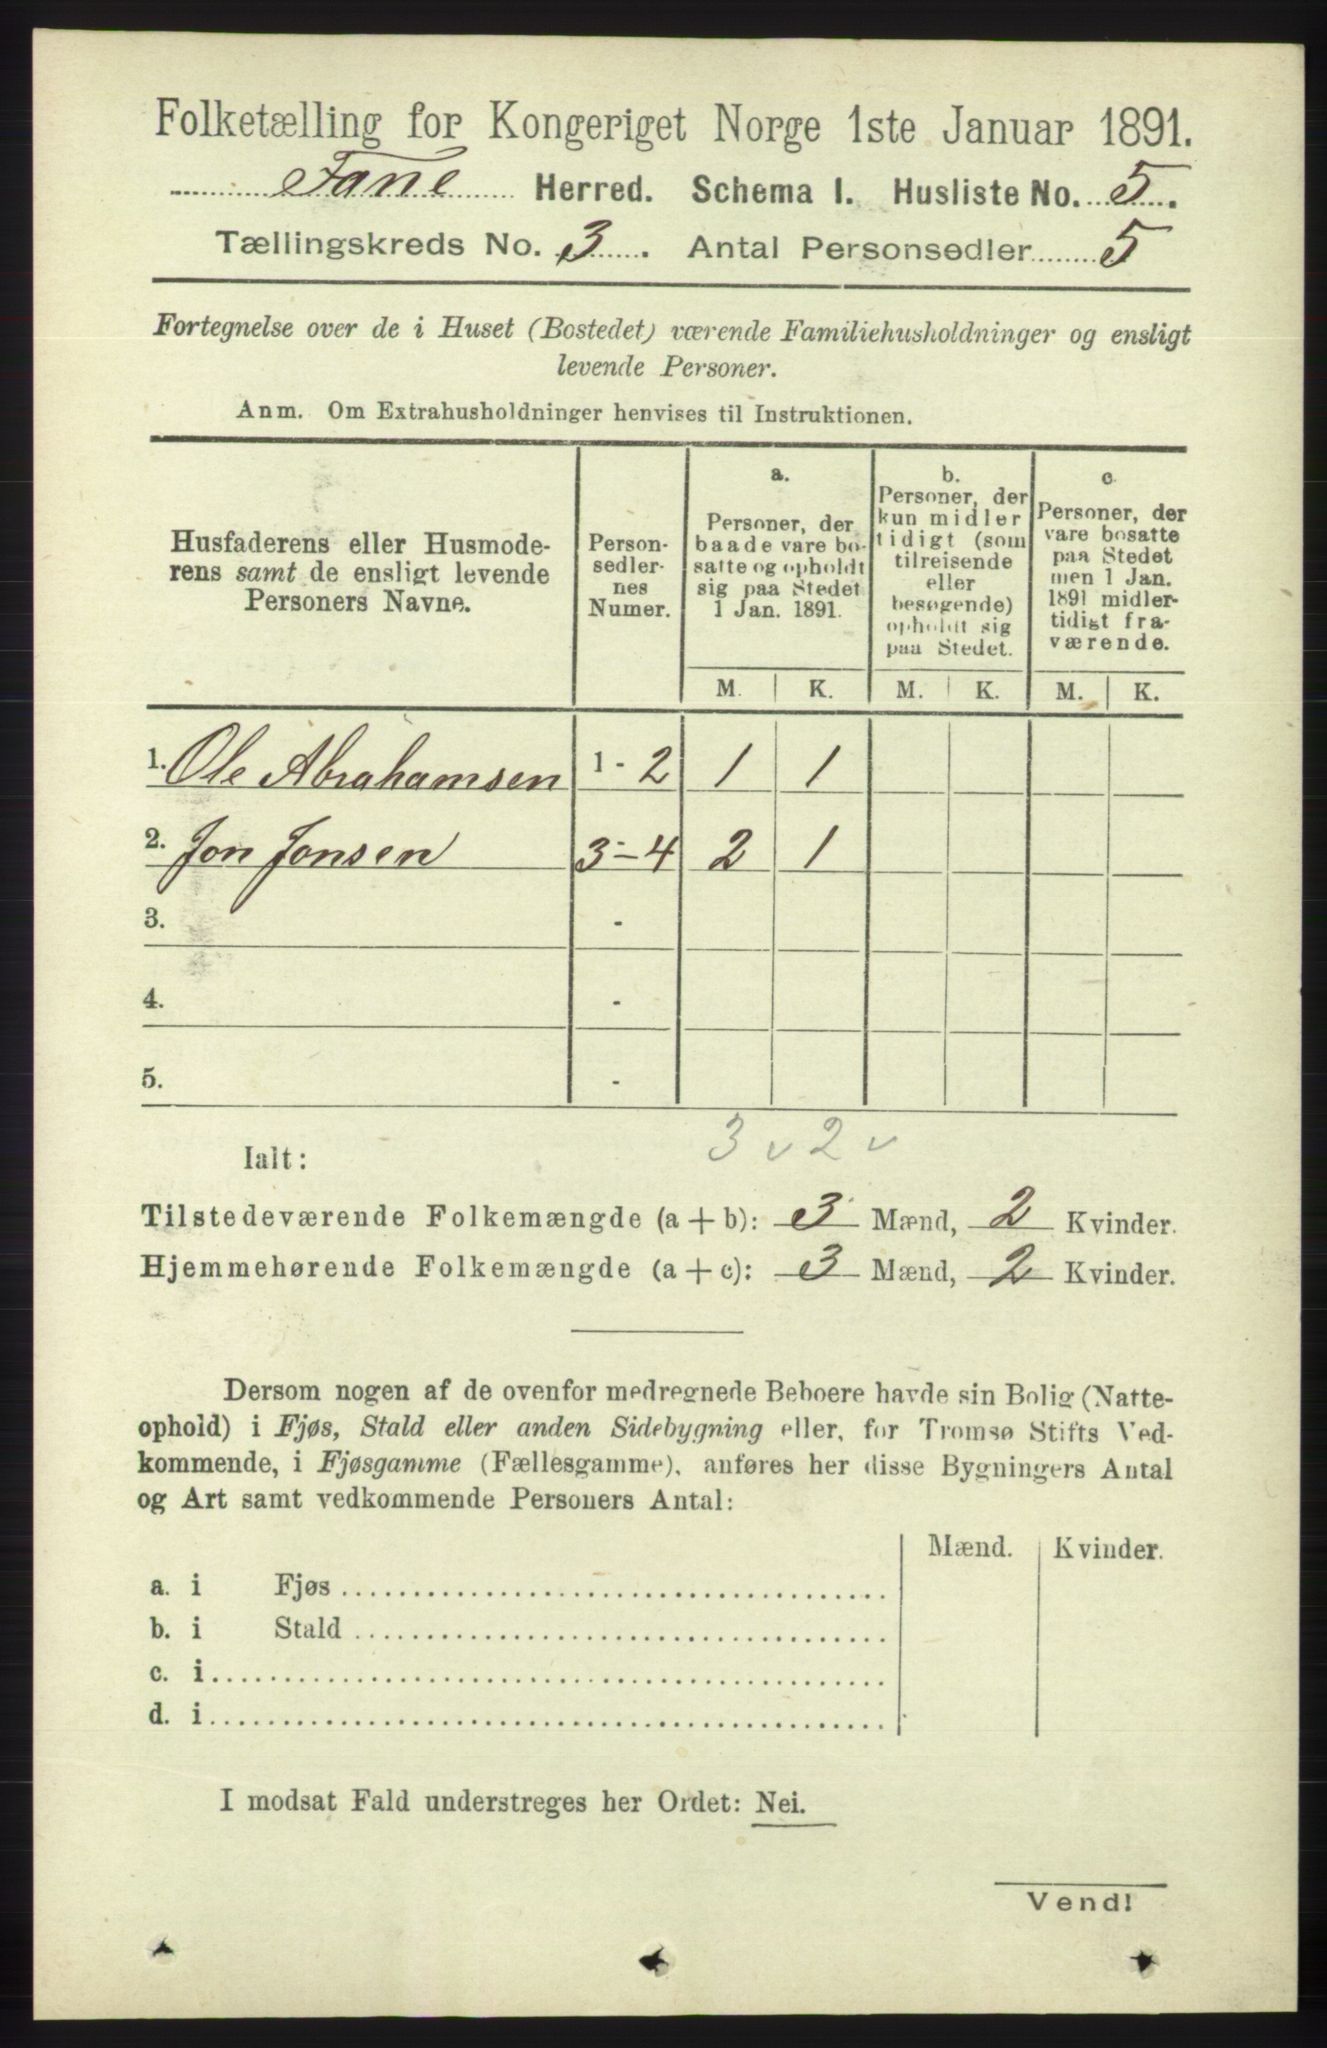 Folketælling for Kongeriget Norge 1ste Januar 1891.
Fane Herred. Schema I. Husliste No. 5.
Tællingskreds No. 3. Antal Personsedler 5
Fortegnelse over de i Huset (Bostedet) værende Familiehusholdninger og ensligt
levende Personer.
Anm. Om Extrahusholdninger henvises til Instruktionen.
Husfaderens eller Husmode-
rens samt de ensligt levende
Personers Navne.
Person-
sedler-
nes
Numer.
a.
Personer, der
baade vare bo-
satte og opholdt
sig paa Stedet
1 Jan. 1891.
b.
Personer, der
kun midler
tidigt (som
tilreisende
eller
besøgende)
opholdt sig
paa Stedet.
c.
Personer, der
vare bosatte
paa Stedet
men 1 Jan.
1891 midler-
tidigt fra-
værende.
M. K. M. K. M. K.
1. Ole Abrahamsen 1 - 2 1 1
2. Jon Jonsen 3 - 4 2 1
3. -
4. -
5. -
3 v 2 v
Ialt:
Tilstedeværende Folkemængde (a + b): 3 Mænd, 2 Kvinder.
Hjemmehørende Folkemængde (a + c): 3 Mænd, 2 Kvinder.
Dersom nogen af de ovenfor medregnede Beboere havde sin Bolig (Natte-
ophold) i Fjøs, Stald eller anden Sidebygning eller, for Tromsø Stifts Ved-
kommende, i Fjøsgamme (Fællesgamme), anføres her disse Bygningers Antal
og Art samt vedkommende Personers Antal:
Mænd. Kvinder.
a. i Fjøs
b. i Stald
c. i
d. i
I modsat Fald understreges her Ordet: Nei.
Vend!